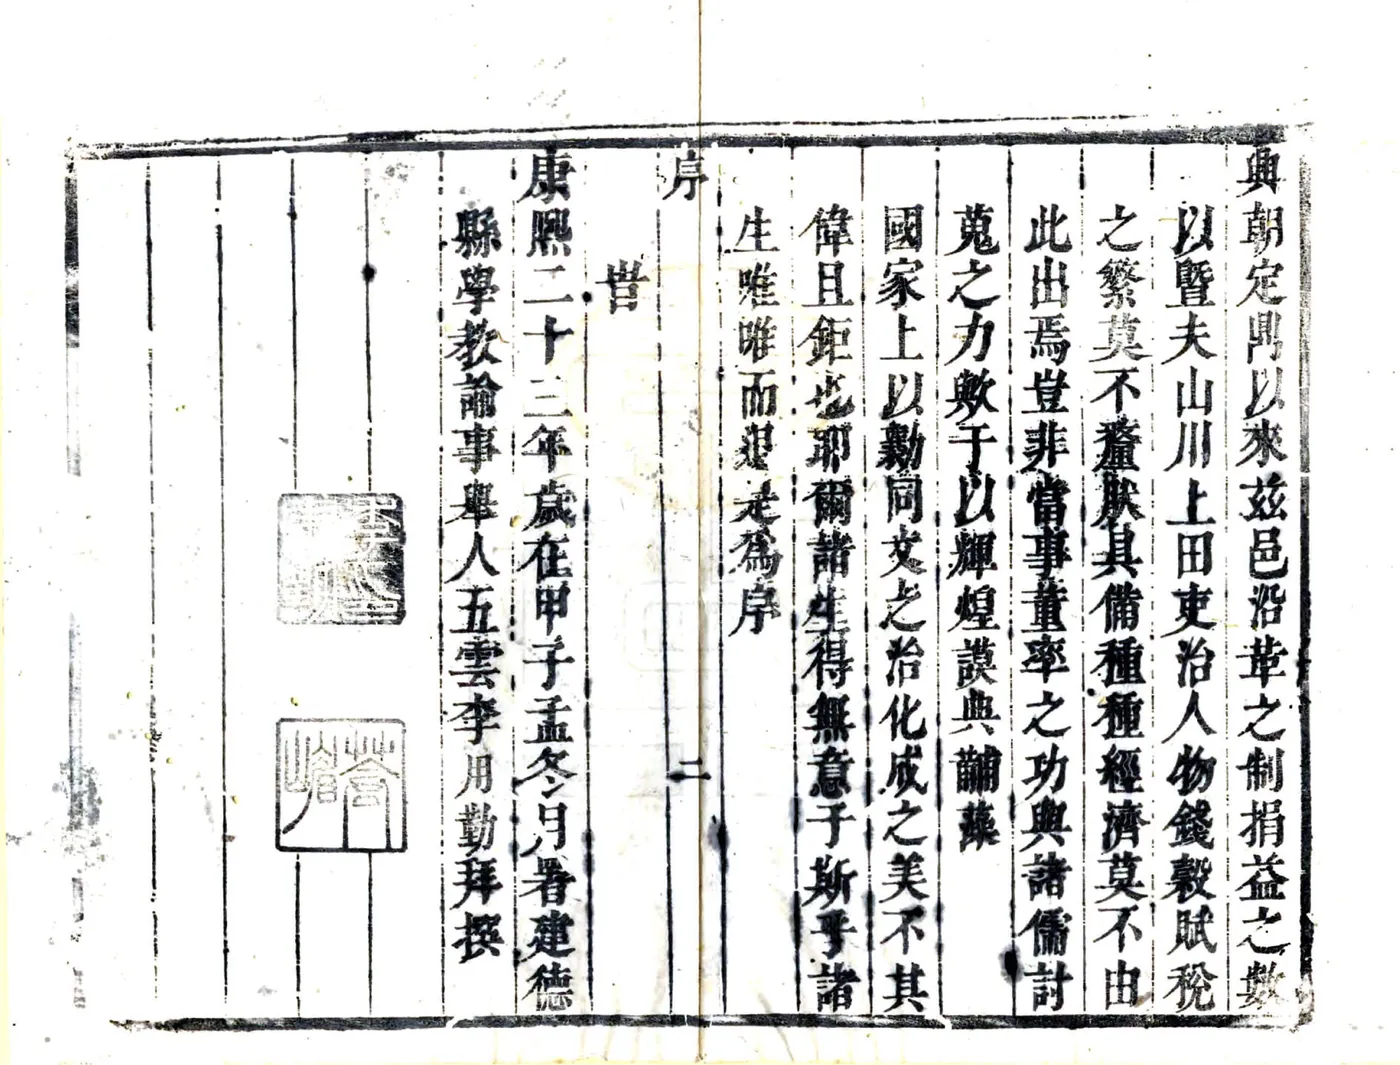 興朝定鼎以來茲邑沿革之制捐益之數
以暨夫山川上田吏治人物錢穀賦稅
之繁莫不釐肰具備種種經濟莫不由
此出焉豈非當事董率之功與諸儒討
蒐之力歟于以輝煌謨典黼藻
國家上以勷同文之治化成之美不其
偉且鉅也耶爾諸生得無意于斯乎諸
生唯唯而退是為序
序 二
旹
康熙二十三年歲在甲子孟冬月署建德
縣學教諭事舉人五雲李用勤拜撰